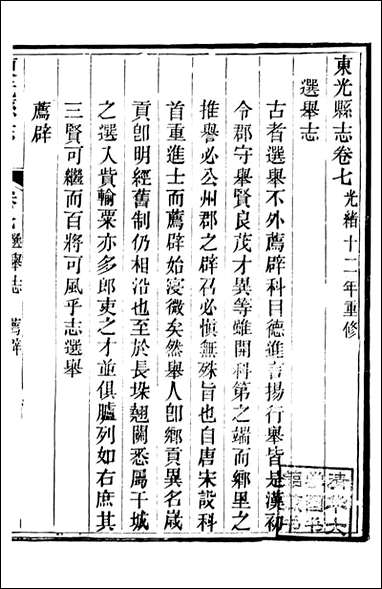 東光縣志卷七 光緒十二年重修
選舉志
古者選舉不外薦辟科目德進言揚行舉皆是漢初
令郡守舉賢良茂才異等雖開科第之端而鄉里之
推譽必公州郡之辟召必慎無殊旨也自唐宋設科
首重進士而薦辟始寖微矣然舉人卽鄉貢異名歲
貢卽明經舊制仍相沿也至於長垛翹關悉屬干城
之選入貲輸粟亦多郎吏之才並俱臚列如右庶其
三賢可繼而百將可風乎志選舉
薦辟
卷七 選舉志 薦辟